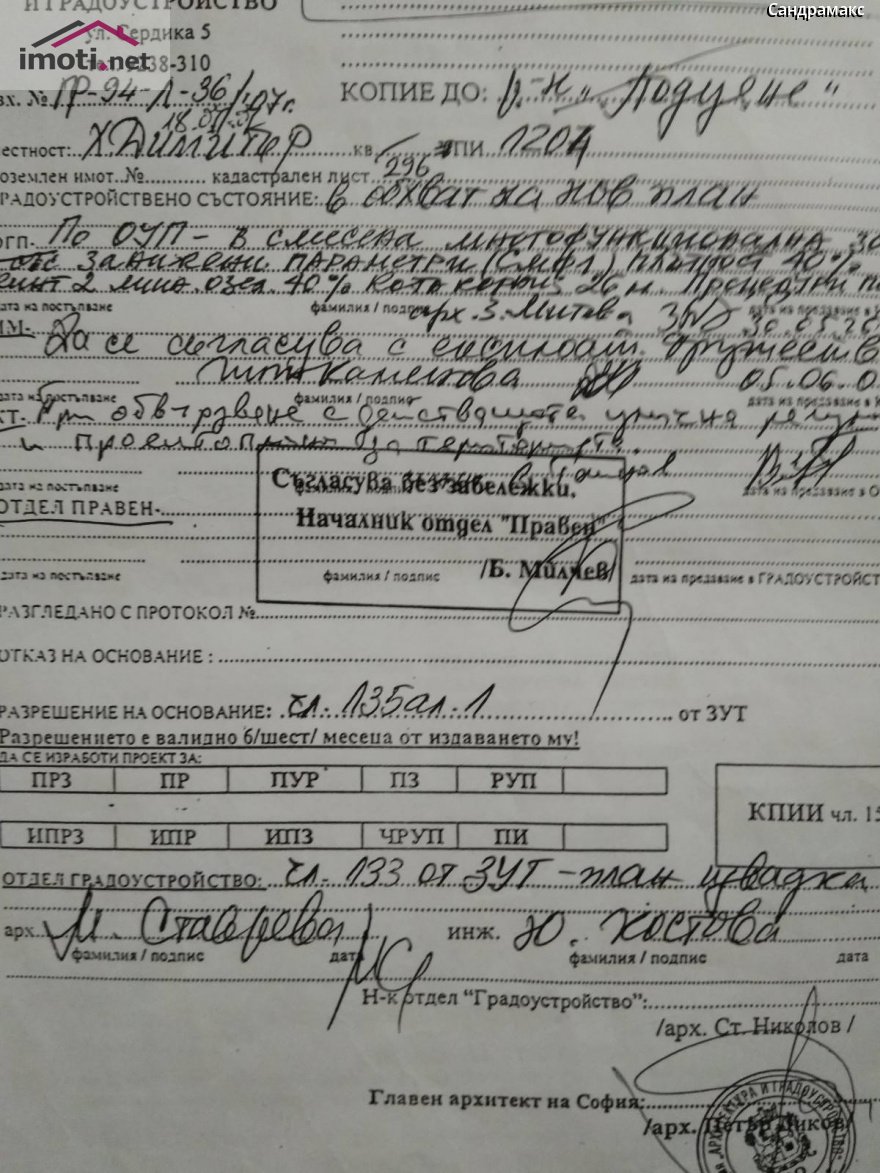 И ГРАДОУСТРОЙСТВО
Сандрамакс
ул. Сердика 5
imoti.net
9238-310
вх. № ГР-94-Л-36/07г. КОПИЕ ДО: р-н "Подуяне"
естност: Х Димитър кв. ПИ 1204
оземлен имот.№ кадастрален лист 296
РАДОУСТРОЙСТВЕНО СЪСТОЯНИЕ: в обхват на нов план
По ОУП - в смесена многофункционална зо
занижени параметри (Смф1) плътност 40%
2 мин. озел. 40% Кота корниз 26 м.
ата на постъпване фамилия / подпис арх. З. Митова
Да се съгласува с експлоат. дружества
05.06.0
дата на постъпване фамилия / подпис
При обвързване с действащата улична регул
и
дата на постъпване
Съгласува без забележки.
ОТДЕЛ ПРАВЕН-
Началник отдел "Правен"
/Б. Милчев/
дата на постъпване фамилия / подпис дата на предаване в ГРАДОУСТРОЙСТ
РАЗГЛЕДАНО С ПРОТОКОЛ №
ОТКАЗ НА ОСНОВАНИЕ :
РАЗРЕШЕНИЕ НА ОСНОВАНИЕ: чл. 135 ал. 1 от ЗУТ
Разрешението е валидно 6/шест/ месеца от издаването му!
ДА СЕ ИЗРАБОТИ ПРОЕКТ ЗА:
ПРЗ ПР ПУР ПЗ РУП
КПИИ чл. 15
ИПРЗ ИПР ИПЗ ЧРУП ПИ
ОТДЕЛ ГРАДОУСТРОЙСТВО: чл. 133 от ЗУТ - план извадка
арх. М. Ставрева инж. Ю. Костова
фамилия / подпис дата фамилия / подпис дата
Н-к отдел "Градоустройство":
/арх. Ст. Николов /
Главен архитект на София:
/арх. Петър Диков/
АРХИТЕКТУРА И ГРАДОУСТРОЙСТВО